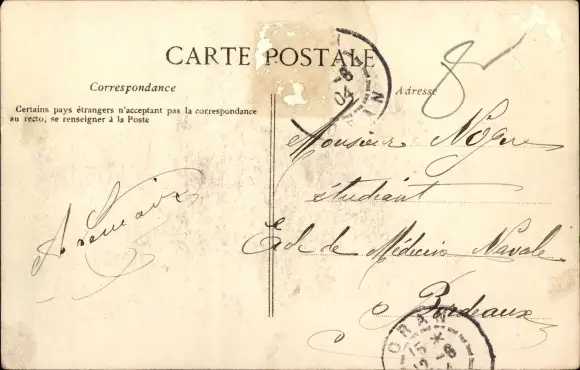 CARTE POSTALE
Correspondance
Adresse
8
Certains pays étrangers n'acceptant pas la correspondance
au recto, se renseigner à la Poste
-8
04
Monsieur Nogue
étudiant
Ecole de Médecine Navale
Bordeaux
ORAN
15 *
-8